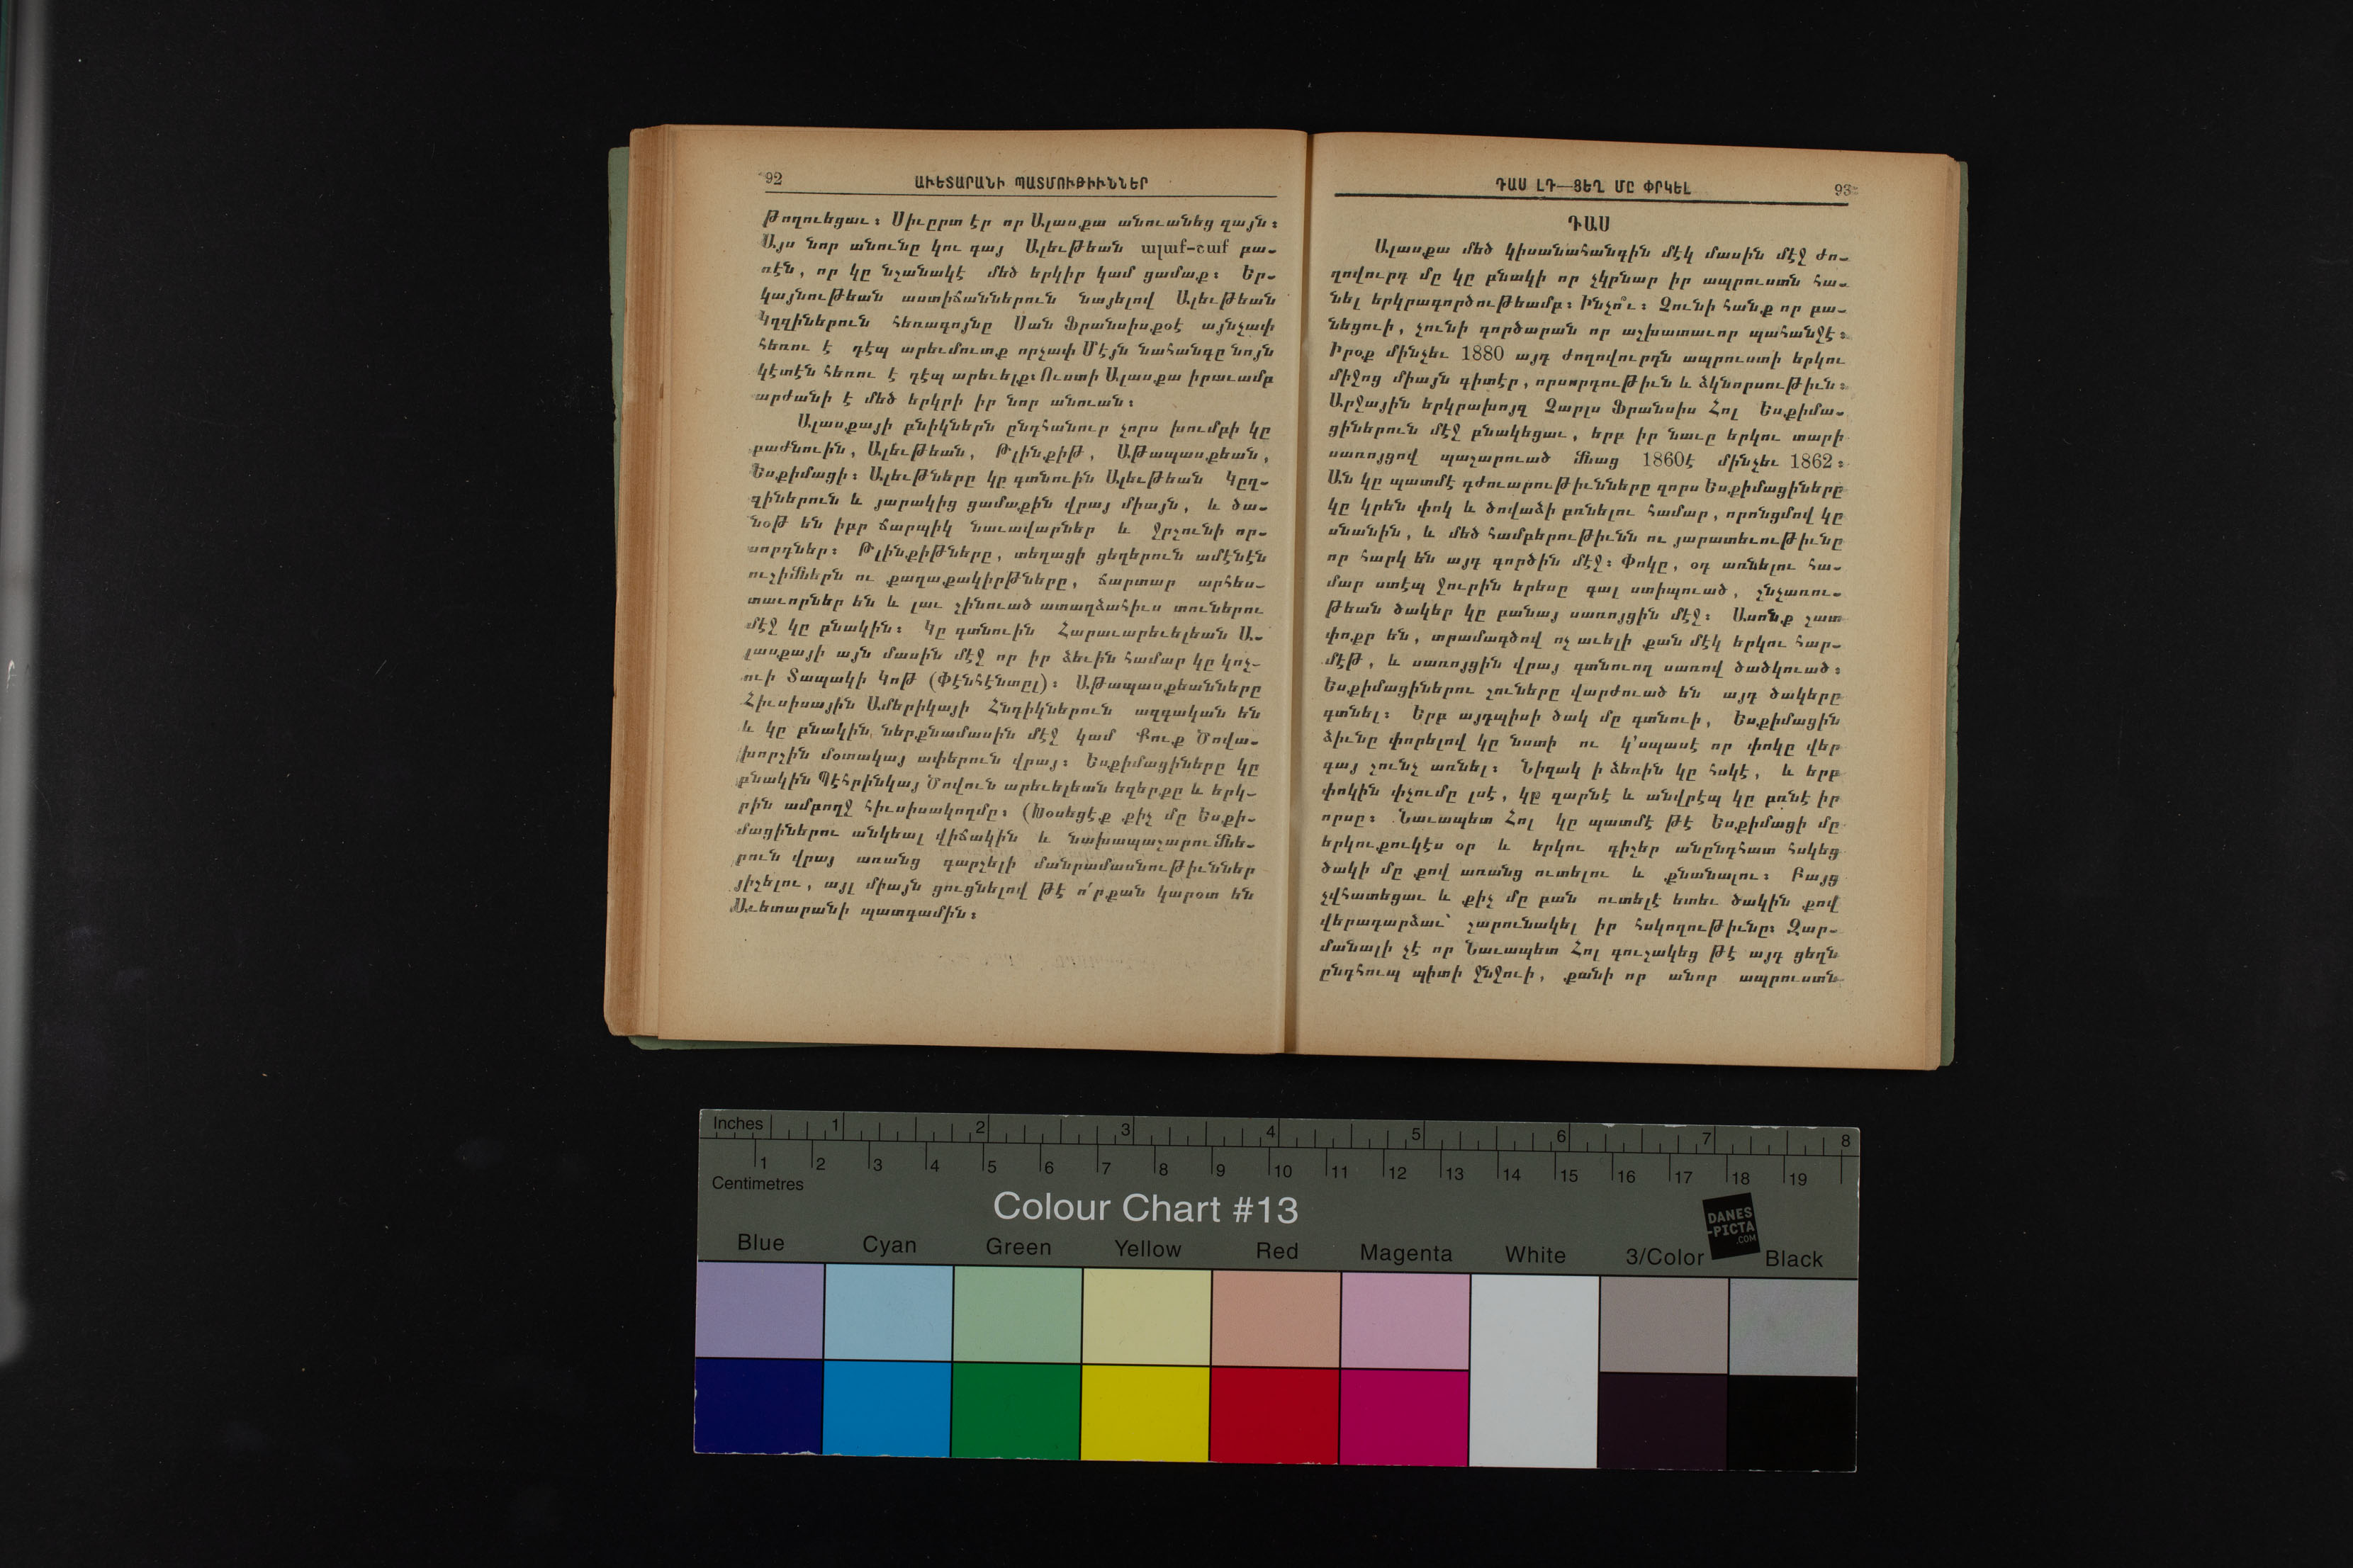 92
ԱՒԵՏԱՐԱՆԻ ՊԱՏՄՈՒԹԻՒՆՆԵՐ
թողուեցաւ։ Սիւըրտ էր որ Ալասքա անուանեց զայն։
Այս նոր անունը կու գայ Ալեւթեան ալաք-շաք բա-
ռէն, որ կը նշանակէ մեծ երկիր կամ ցամաք։ Եր-
կայնութեան աստիճաններուն նայելով Ալեւթեան
Կղզիներուն հեռագոյնը Սան Ֆրանսիսքօէ այնչափ
հեռու է դէպ արեւմուտք որչափ Մէյն նահանգը նոյն
կէտէն հեռու է դէպ արեւելք։ Ուստի Ալասքա իրաւամբ
արժանի է մեծ երկրի իր նոր անուան։
Ալասքայի բնիկներն ընդհանուր չորս խումբի կը
բաժնուին, Ալեւթեան, Թլինքիթ, Աթապասքեան,
Եսքիմացի։ Ալեւթները կը գտնուին Ալեւթեան Կըղ-
զիներուն և յարակից ցամաքին վրայ միայն, և ծա-
նօթ են իբր ճարպիկ նաւավարներ և ջրշունի որ-
սորդներ։ Թլինքիթները, տեղացի ցեղերուն ամէնէն
ուշիմներն ու քաղաքակիրթները, ճարտար արհես-
տաւորներ են և լաւ շինուած ատաղձահիւս տուներու
մէջ կը բնակին։ Կը գտնուին Հարաւարեւելեան Ա-
լասքայի այն մասին մէջ որ իր ձեւին համար կը կոչ-
ուի Տապակի Կոթ (Փէնհէնտըլ)։ Աթապասքեանները
Հիւսիսային Ամերիկայի Հնդիկներուն ազգական են
և կը բնակին ներքնամասին մէջ կամ Քուք Ծովա-
խորշին մօտակայ ափերուն վրայ։ Եսքիմացիները կը
բնակին Պէհրինկայ Ծովուն արեւելեան եզերքը և երկ-
րին ամբողջ հիւսիսակողմը։ (Խօսեցէք քիչ մը Եսքի-
մացիներու անկեալ վիճակին և նախապաշարումնե-
րուն վրայ առանց գարշելի մանրամասնութիւններ
յիշելու, այլ միայն ցուցնելով թէ ո՛րքան կարօտ են
Աւետարանի պատգամին։
ԴԱՍ ԼԴ—ՑԵՂ ՄԸ ՓՐԿԵԼ
93
ԴԱՍ
Ալասքա մեծ կիսանահանգին մէկ մասին մէջ ժո-
ղովուրդ մը կը բնակի որ չկրնար իր ապրուստն հա-
նել երկրագործութեամբ։ Ինչո՞ւ։ Չունի հանք որ բա-
նեցուի, չունի գործարան որ աշխատաւոր պահանջէ։
Իրօք մինչեւ 1880 այդ ժողովուրդն ապրուստի երկու
միջոց միայն գիտէր, որսորդութիւն և ձկնորսութիւն։
Արջային երկրախոյզ Չարլս Ֆրանսիս Հոլ Եսքիմա-
ցիներուն մէջ բնակեցաւ, երբ իր նաւը երկու տարի
սառոյցով պաշարուած մնաց 1860է մինչեւ 1862։
Ան կը պատմէ դժուարութիւնները զորս Եսքիմացիները
կը կրեն փոկ և ծովաձի բռնելու համար, որոնցմով կը
սնանին, և մեծ համբերութիւնն ու յարատեւութիւնը
որ հարկ են այդ գործին մէջ։ Փոկը, օդ առնելու հա-
մար ստէպ ջուրին երեսը գալ ստիպուած, շնչառու-
թեան ծակեր կը բանայ սառոյցին մէջ։ Ասոնք շատ
փոքր են, տրամագծով ոչ աւելի քան մէկ երկու հար-
մէթ, և սառոյցին վրայ գտնուող սառով ծածկուած։
Եսքիմացիներու շուները վարժուած են այդ ծակերը
գտնել։ Երբ այդպիսի ծակ մը գտնուի, Եսքիմացին
ձիւնը փորելով կը նստի ու կ՚սպասէ որ փոկը վեր
գայ շունչ առնել։ Նիզակ ի ձեռին կը հսկէ, և երբ
փոկին փչումը լսէ, կը զարնէ և անվրէպ կը բռնէ իր
որսը։ Նաւապետ Հոլ կը պատմէ թէ Եսքիմացի մը
երկուքուկէս օր և երկու գիշեր անընդհատ հսկեց
ծակի մը քով առանց ուտելու և քնանալու։ Բայց
չվհատեցաւ և քիչ մը բան ուտելէ ետեւ ծակին քով
վերադարձաւ՝ շարունակել իր հսկողութիւնը։ Զար-
մանալի չէ որ Նաւապետ Հոլ գուշակեց թէ այդ ցեղն
ընդհուպ պիտի ջնջուի, քանի որ անոր ապրուստն
Inches 1 2 3 4 5 6 7 8
1 2 3 4 5 6 7 8 9 10 11 12 13 14 15 16 17 18 19
Centimetres
Colour Chart #13
DANES
-PICTA
.COM
Blue Cyan Green Yellow Red Magenta White 3/Color Black